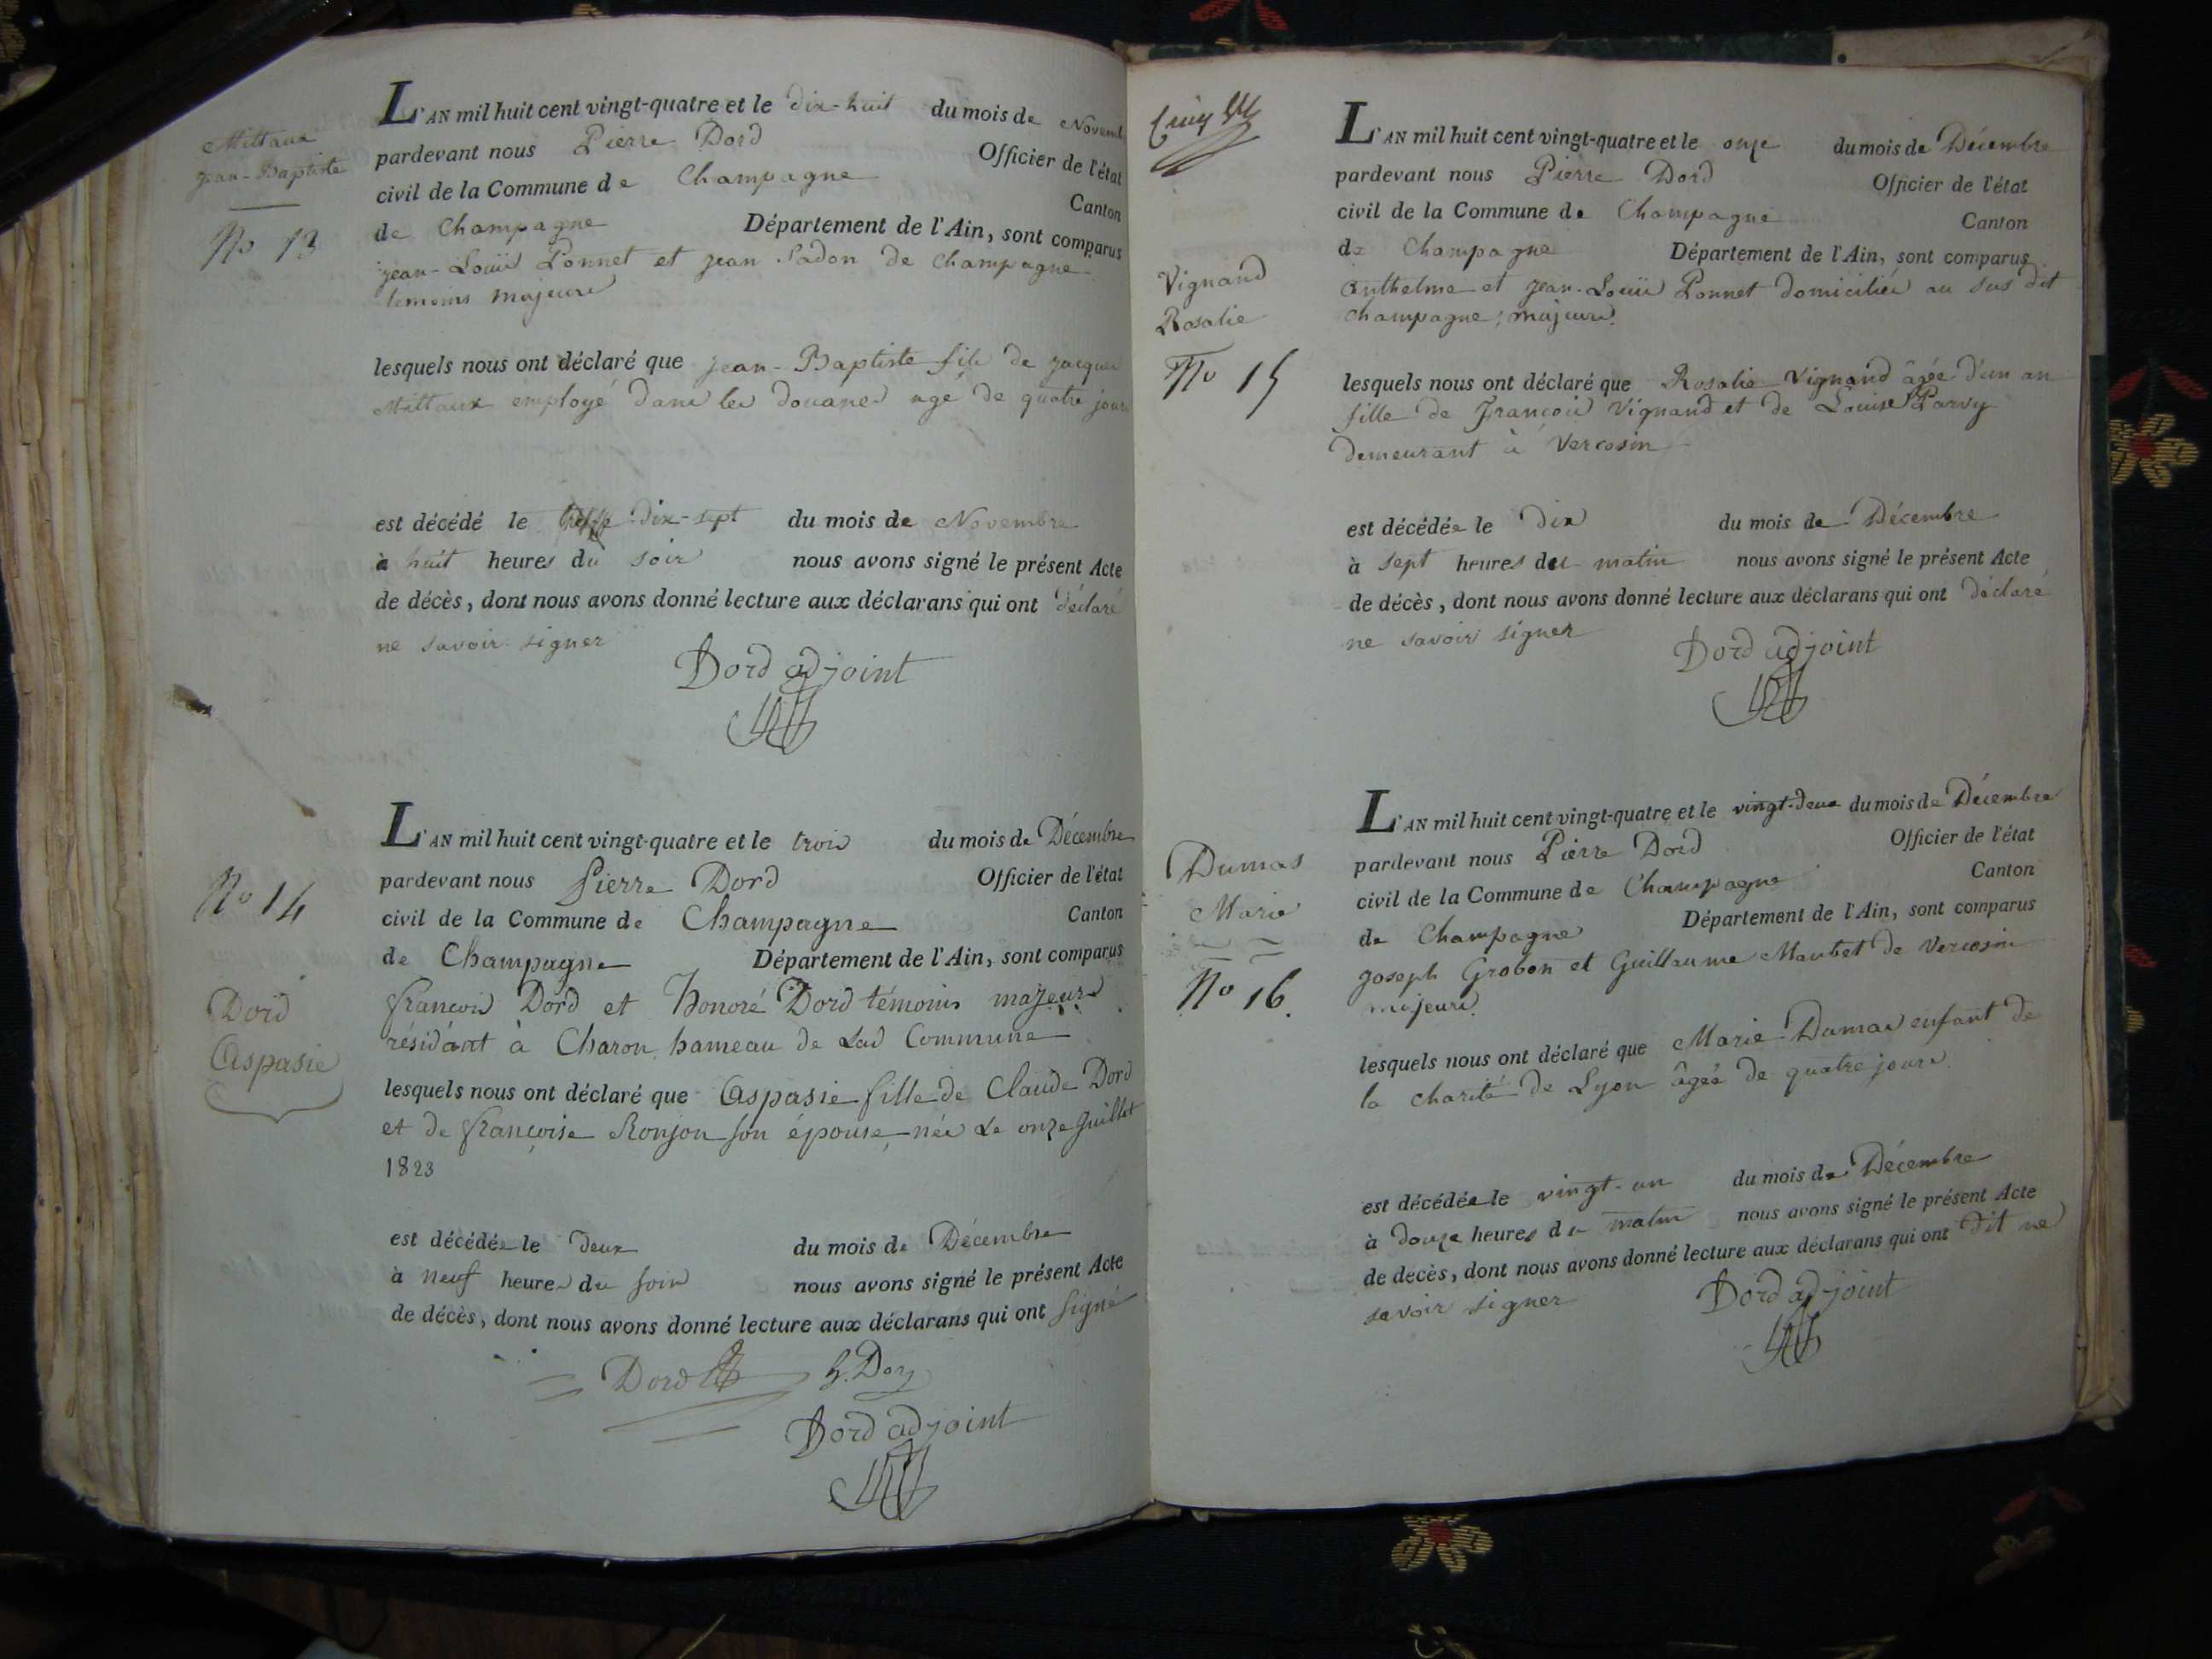 Mittaux
jean-Baptiste
No 13
L'AN mil huit cent vingt-quatre et le dix-huit du mois de Novemb
pardevant nous Pierre Dord Officier de l'état
civil de la Commune de Champagne Canton
de Champagne Département de l'Ain, sont comparus
jean-Louis Ponnet et jean Sadon de Champagne
temoins majeurs
lesquels nous ont déclaré que jean-Baptiste fils de jacques
Mittaux employé dans les douanes agé de quatre jours
est décédé le dix-sept du mois de Novembre
à huit heures du soir nous avons signé le présent Acte
de décès, dont nous avons donné lecture aux déclarans qui ont déclaré
ne savoir signer
Dord adjoint
No 14
Dord
Aspasie
L'AN mil huit cent vingt-quatre et le trois du mois de Décembre
pardevant nous Pierre Dord Officier de l'état
civil de la Commune de Champagne Canton
de Champagne Département de l'Ain, sont comparus
françois Dord et Honoré Dord témoins majeurs
résidant à Charon hameau de Lad Commune
lesquels nous ont déclaré que Aspasie fille de Claude Dord
et de françoise Ronjon son épouse née Le onze Juillet
1823
est décédée le deux du mois de Décembre
à neuf heures du soir nous avons signé le présent Acte
de décès, dont nous avons donné lecture aux déclarans qui ont signé
Dord h. Dord
Dord adjoint
Cinq
Vignand
Rosalie
No 15
L'AN mil huit cent vingt-quatre et le onze du mois de Décembre
pardevant nous Pierre Dord Officier de l'état
civil de la Commune de Champagne Canton
de Champagne Département de l'Ain, sont comparus
Anthelme et jean-Louis Ponnet domiciliés au sus dit
champagne, majeurs.
lesquels nous ont déclaré que Rosalie Vignand âgée d'un an
fille de françois Vignand et de Louise Parvy
demeurant à Vercosin
est décédée le dix du mois de Décembre
à sept heures du matin nous avons signé le présent Acte
de décès, dont nous avons donné lecture aux déclarans qui ont déclaré
ne savoir signer
Dord adjoint
Dumas
Marie
No 16.
L'AN mil huit cent vingt-quatre et le vingt-deux du mois de Décembre
pardevant nous Pierre Dord Officier de l'état
civil de la Commune de Champagne Canton
de Champagne Département de l'Ain, sont comparus
joseph Grobon et Guillaume Maubet de Vercosin
majeurs.
lesquels nous ont déclaré que Marie Dumas enfant de
la charité de Lyon âgée de quatre jours
est décédée le vingt-un du mois de Décembre
à douze heures du matin nous avons signé le présent Acte
de decès, dont nous avons donné lecture aux déclarans qui ont dit ne
savoir signer
Dord adjoint